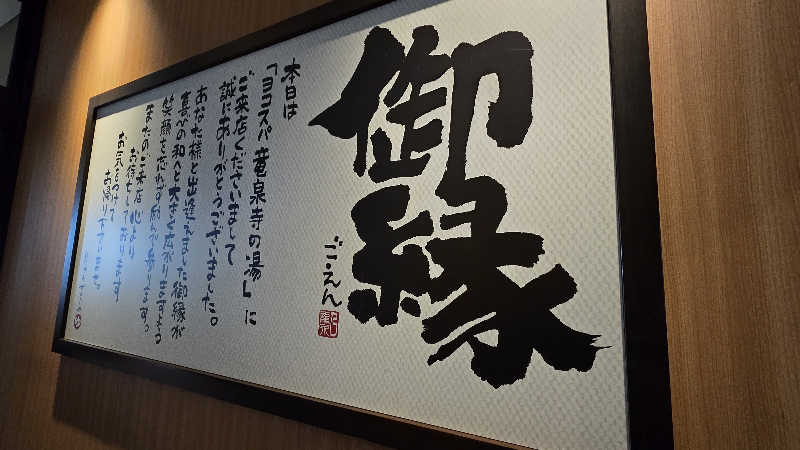 御縁
ご・えん
本日は
「ヨコスパ 竜泉寺の湯」に
ご来店くださいまして
誠にありがとうございました。
あなた様と出逢えました御縁が
喜びの和へと大きく広がりますよう
笑顔を忘れず励んで参ります。
またのご来店 心より
お待ちしております
お気をつけて
お帰り下さいませ。